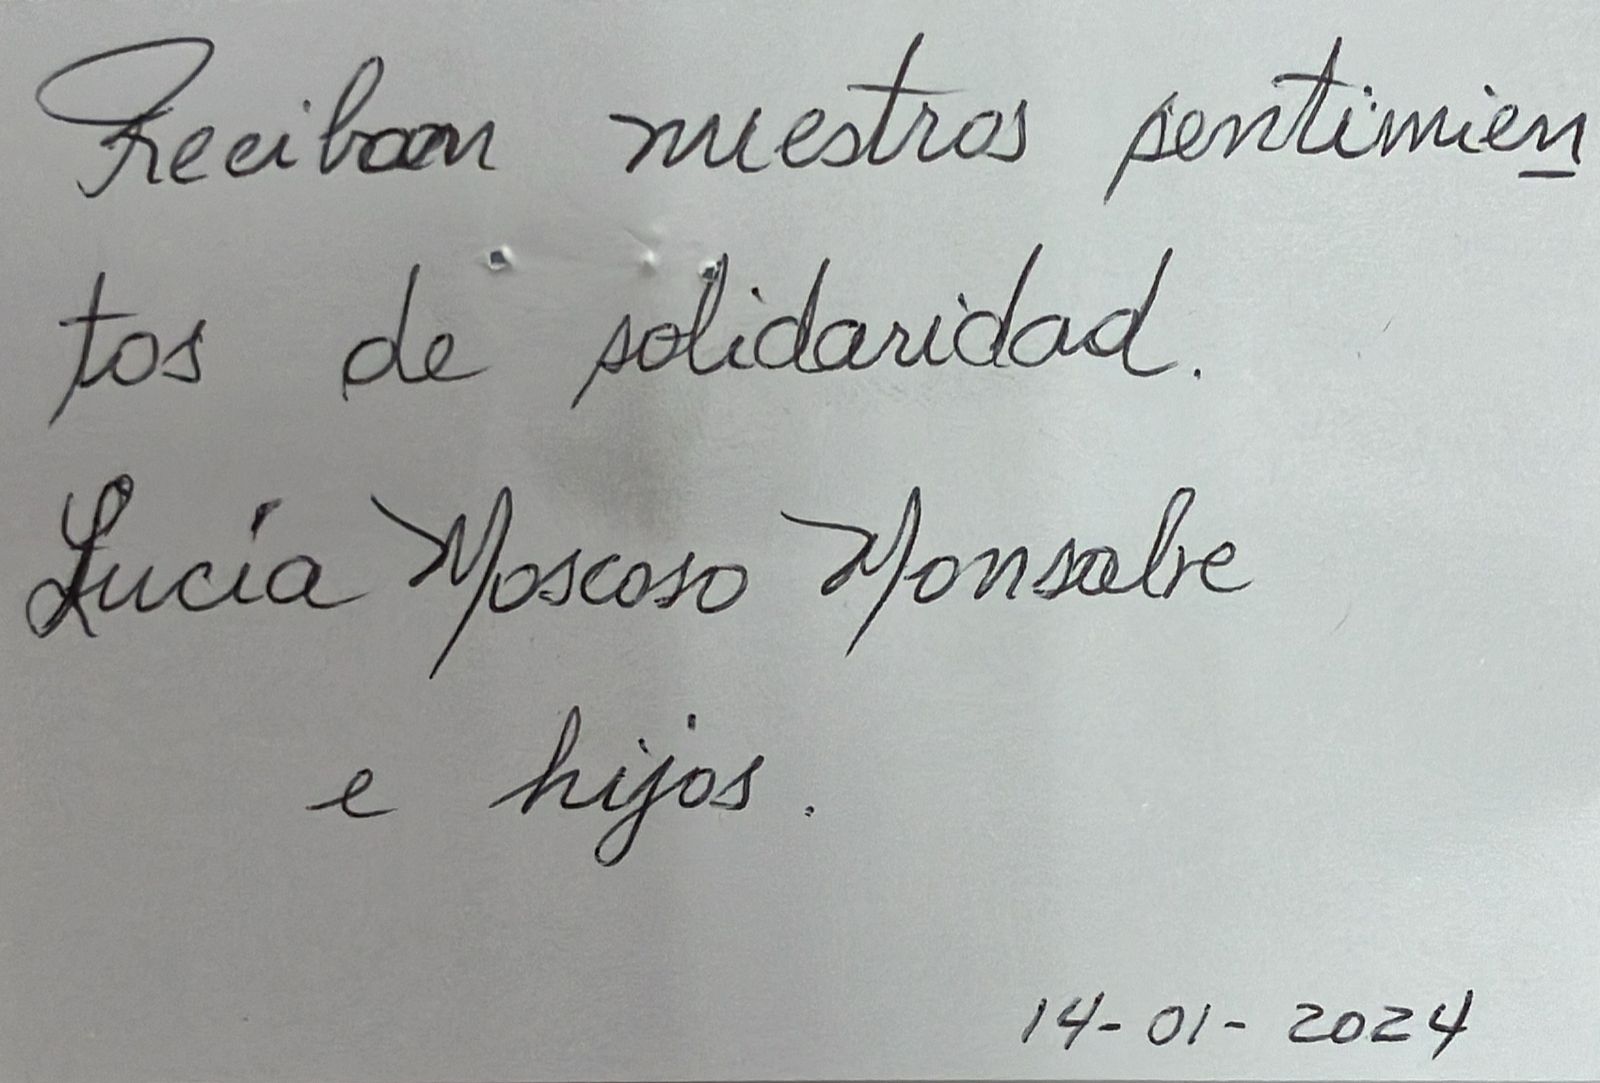 Reciban nuestros sentimien
tos de solidaridad.
Lucía Moscoso Monsalve
e hijos.
14-01-2024